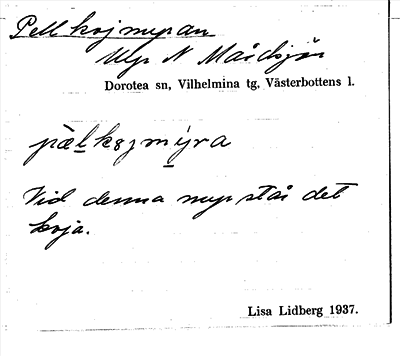 Pellkojmyran
Myr N Maidsjön
Dorotea sn, Vilhelmina tg, Västerbottens l.
pæ̀lkɷjmýra
Vid denna myr står det
koja.
Lisa Lidberg 1937.